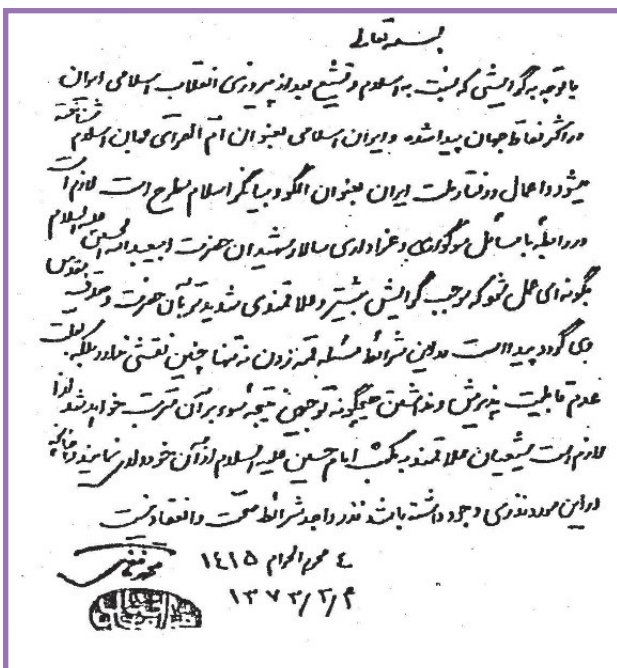 بسمه تعالی
با توجه به گرایشی که نسبت به اسلام و تشیع بعد از پیروزی انقلاب اسلامی ایران
در اکثر نقاط جهان پیدا شده و ایران اسلامی بعنوان ام القرای جهان اسلام شناخته
میشود و اعمال و رفتار ملت ایران بعنوان الگو و بیانگر اسلام مطرح است لازم است
در رابطه با مسائل سوگواری و عزاداری سالار شهیدان حضرت ابیعبداله الحسین علیه السلام
بگونه ای عمل شود که موجب گرایش بیشتر و علاقمندی شدیدتر بآن حضرت و هدف مقدس
وی گردد پیدا است در این شرائط مسئله قمه زدن نه تنها چنین نقشی ندارد بلکه بعلت
عدم قابلیت پذیرش و نداشتن هیچگونه توجیهی نتیجه سوء بر آن مترتب خواهد شد لذا
لازم است شیعیان علاقمند به مکتب امام حسین علیه السلام از آن خودداری نمایند و چنانچه
در این مورد نذری وجود داشته باشد نذر واجد شرائط صحت و انعقاد نیست
٤ محرم الحرام ١٤١٥